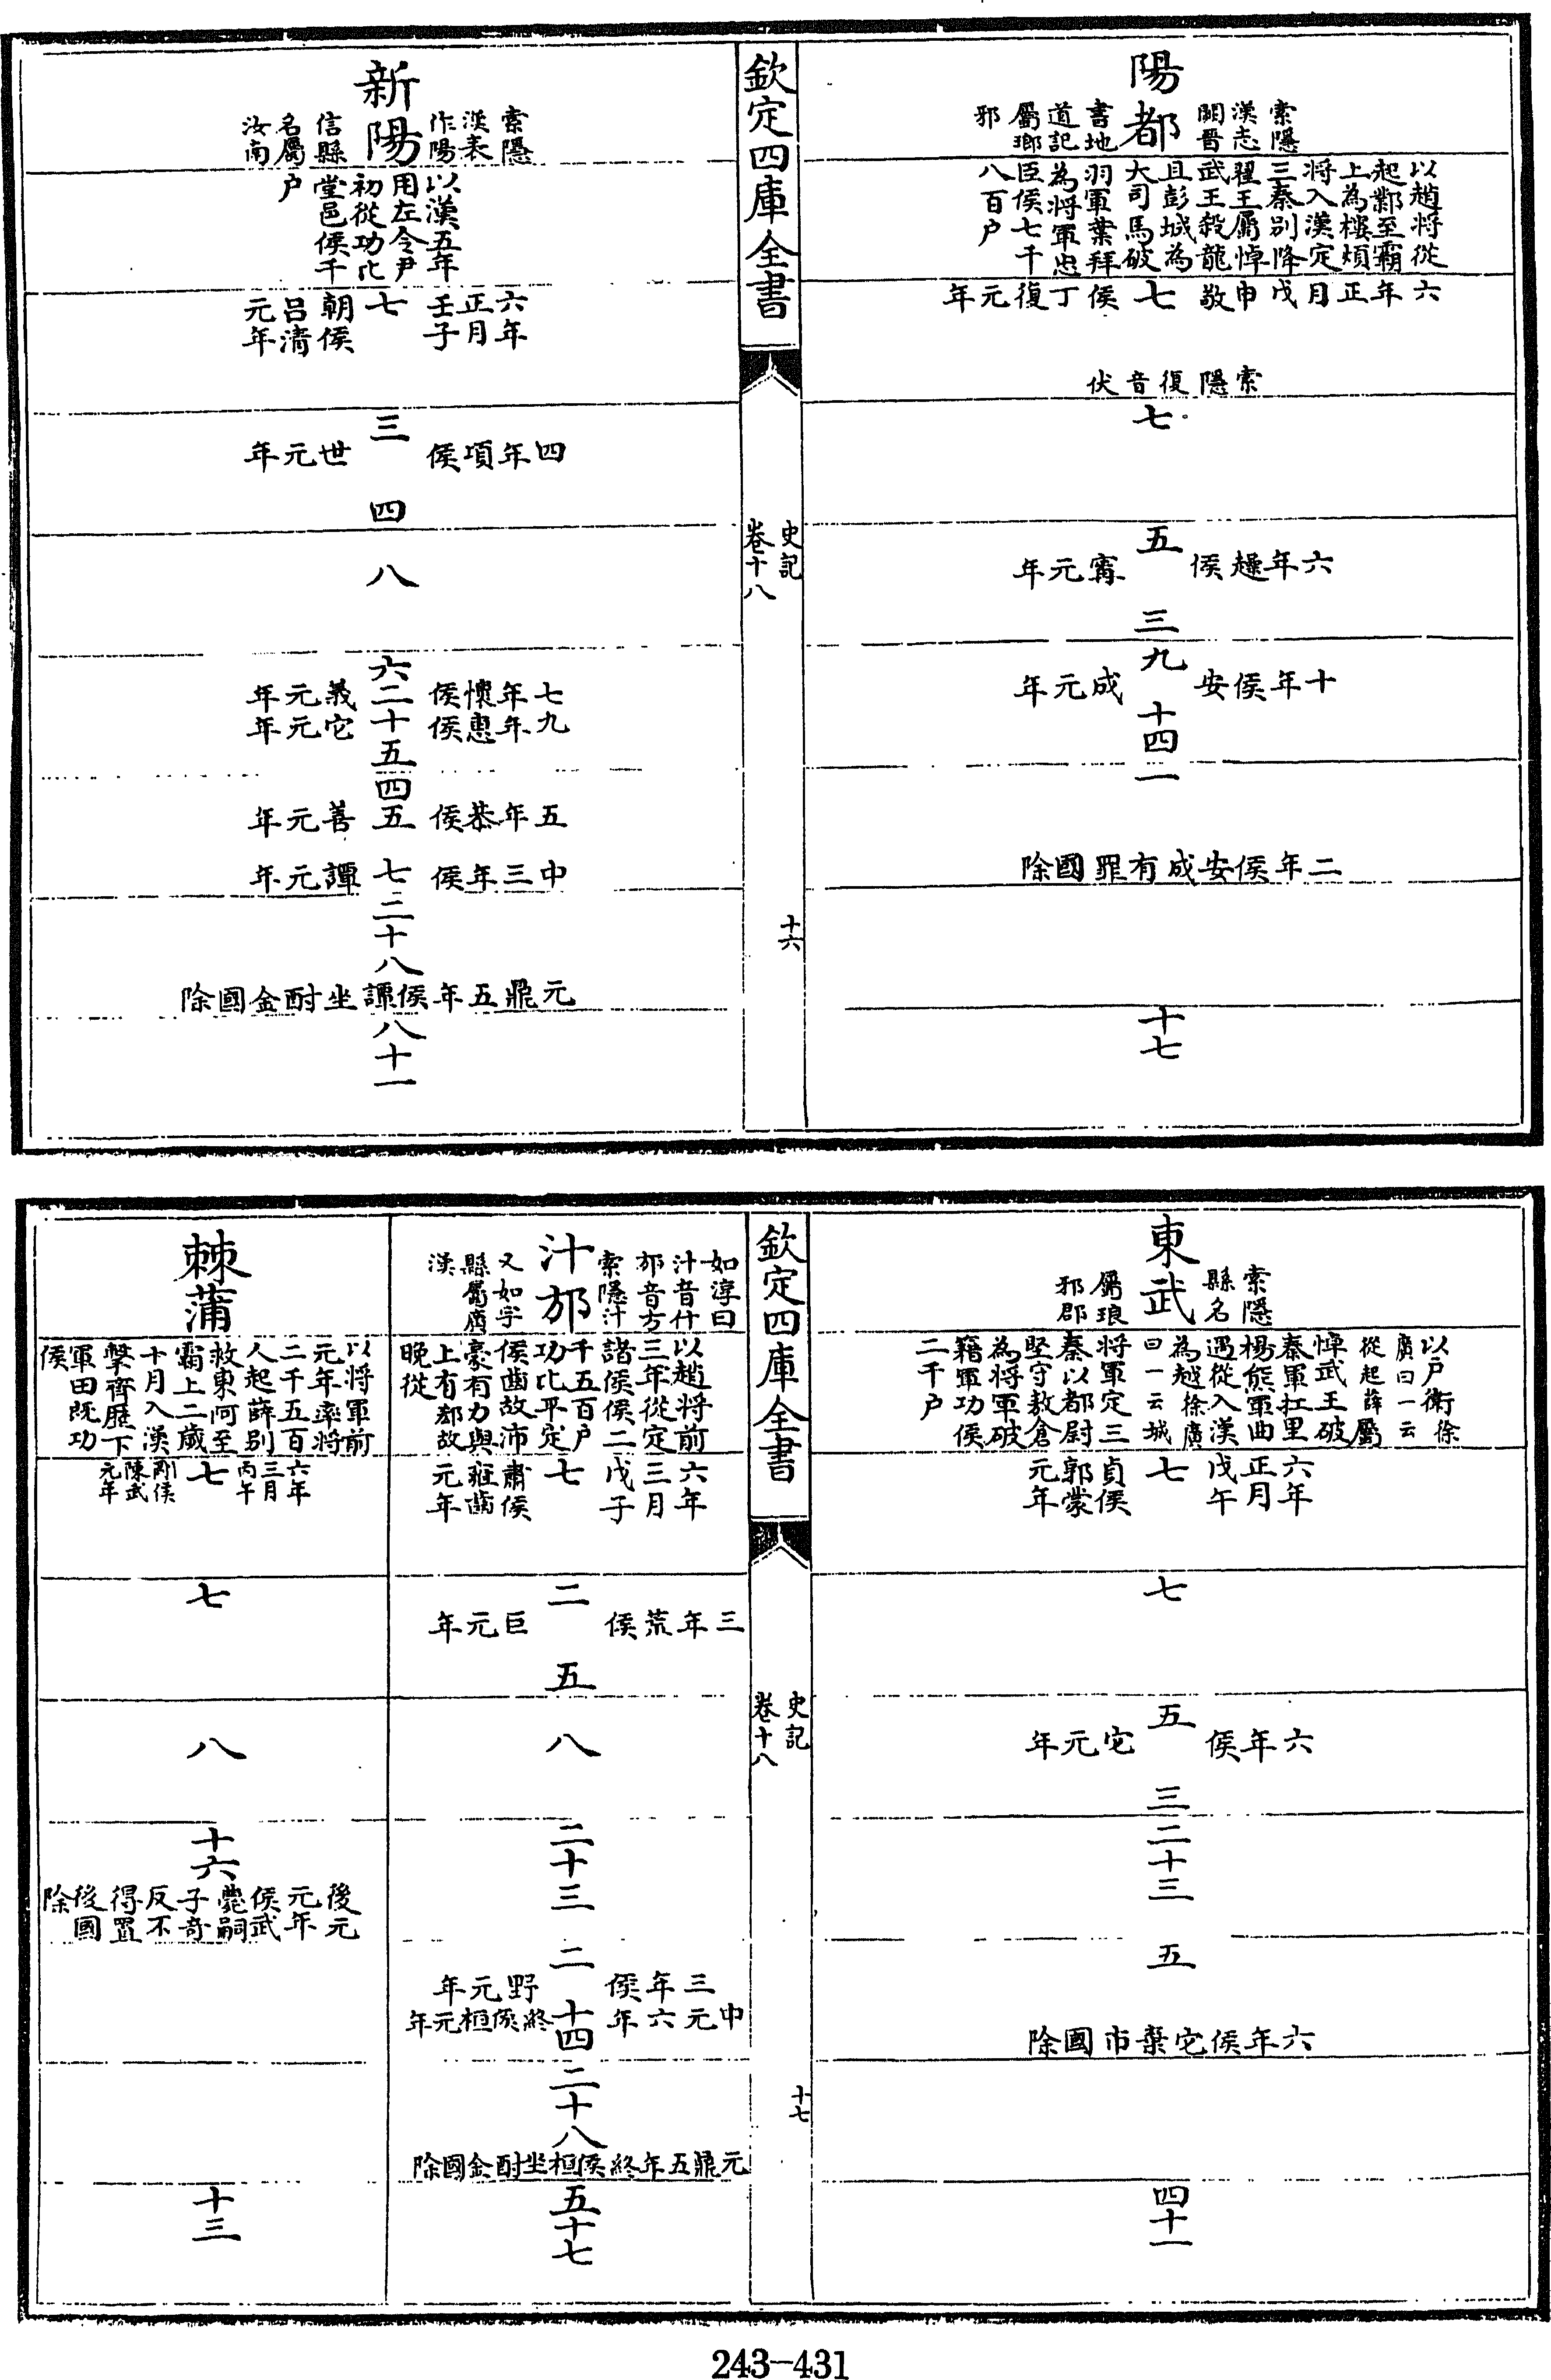 陽都
索隱漢志闕晋書地道記屬瑯邪
以趙將從起鄴至霸上為樓煩將入漢定三秦别降翟王屬悼武王殺龍且彭城為大司馬破羽軍葉拜為將軍忠臣侯七千八百户
六年正月戊申敬侯丁復元年
七
索隱復音伏
七
五
六年趮侯甯元年
三
九
十年侯安成元年
十四
一
二年侯安成有罪國除
十七
欽定四庫全書
史記
卷十八
十六
新陽
索隱漢表作陽信縣名屬汝南
以漢五年用左令尹初從功比堂邑侯千户
六年正月壬子朝侯吕清元年
七
三
四年頃侯世元年
四
八
六
七年懷侯義元年
二
九年惠侯它元年
十五
四
五年恭侯善元年
五
中三年侯譚元年
七
二十八
元鼎五年侯譚坐酎金國除
八十一
東武
索隱縣名屬琅邪郡
以户衛徐廣曰一云從起薛屬悼武王破秦軍扛里楊熊軍曲遇從入漢為越徐廣曰一云城將軍定三秦以都尉堅守敖倉為將軍破籍軍功侯二千户
六年正月戊午貞侯郭蒙元年
七
七
五
六年侯它元年
三
二十三
五
六年侯它棄市國除
四十一
欽定四庫全書
史記
卷十八
十七
汁邡
如淳曰汁音什邡音方索隱汁又如字縣屬廣漢
以趙將前三年從定諸侯侯二千五百户功比平定侯齒故沛豪有力與上有郄故晚從
六年三月戊子肅侯雍齒元年
七
二
三年荒侯巨元年
五
八
二十三
二
三年侯野元年
十四
中元六年終侯桓元年
二十八
元鼎五年終侯桓坐酎金國除
五十七
棘蒲
以將軍前元年率將二千五百人起薛别救東阿至霸上二歲十月入漢擊齊歷下軍田既功侯
六年三月丙午剛侯陳武元年
七
七
八
十六
後元元年侯武薨嗣子奇反不得置後國除
十三
243-431